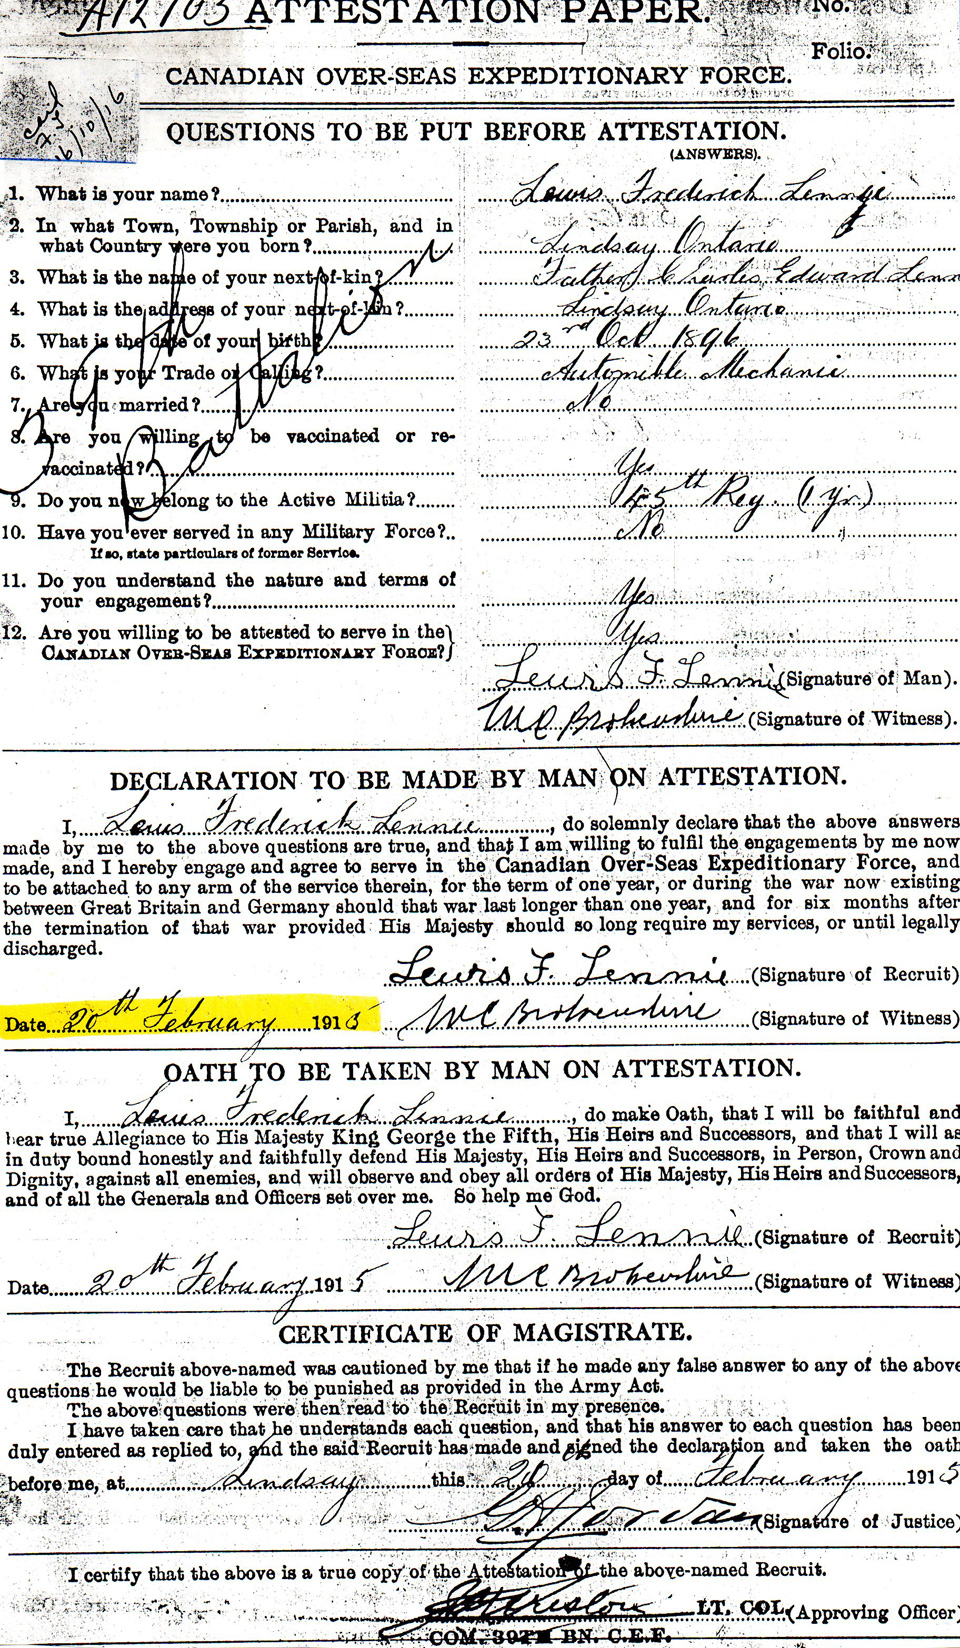 A12703 ATTESTATION PAPER. No.
Folio.
CANADIAN OVER-SEAS EXPEDITIONARY FORCE.
16/10/16
QUESTIONS TO BE PUT BEFORE ATTESTATION.
(ANSWERS).
1. What is your name? Lewis Frederick Lennie
2. In what Town, Township or Parish, and in
what Country were you born? Lindsay Ontario
3. What is the name of your next-of-kin? Father, Charles Edward Lenn
4. What is the address of your next-of-kin? Lindsay Ontario
5. What is the date of your birth? 23rd Oct 1896
6. What is your Trade or Calling? Automible Mechanic
7. Are you married? No
8. Are you willing to be vaccinated or re-
vaccinated? Yes
9. Do you now belong to the Active Militia? 45th Reg. (1 yr.)
10. Have you ever served in any Military Force? No
If so, state particulars of former Service.
11. Do you understand the nature and terms of
your engagement? Yes
12. Are you willing to be attested to serve in the
CANADIAN OVER-SEAS EXPEDITIONARY FORCE? Yes
39th Battalion
Lewis F. Lennie (Signature of Man).
(Signature of Witness).
DECLARATION TO BE MADE BY MAN ON ATTESTATION.
I, Lewis Frederick Lennie, do solemnly declare that the above answers
made by me to the above questions are true, and that I am willing to fulfil the engagements by me now
made, and I hereby engage and agree to serve in the Canadian Over-Seas Expeditionary Force, and
to be attached to any arm of the service therein, for the term of one year, or during the war now existing
between Great Britain and Germany should that war last longer than one year, and for six months after
the termination of that war provided His Majesty should so long require my services, or until legally
discharged.
Lewis F. Lennie (Signature of Recruit)
Date 20th February 1915 (Signature of Witness)
OATH TO BE TAKEN BY MAN ON ATTESTATION.
I, Lewis Frederick Lennie, do make Oath, that I will be faithful and
bear true Allegiance to His Majesty King George the Fifth, His Heirs and Successors, and that I will as
in duty bound honestly and faithfully defend His Majesty, His Heirs and Successors, in Person, Crown and
Dignity, against all enemies, and will observe and obey all orders of His Majesty, His Heirs and Successors,
and of all the Generals and Officers set over me. So help me God.
Lewis F. Lennie (Signature of Recruit)
Date 20th February 1915 (Signature of Witness)
CERTIFICATE OF MAGISTRATE.
The Recruit above-named was cautioned by me that if he made any false answer to any of the above
questions he would be liable to be punished as provided in the Army Act.
The above questions were then read to the Recruit in my presence.
I have taken care that he understands each question, and that his answer to each question has been
duly entered as replied to, and the said Recruit has made and signed the declaration and taken the oath
before me, at Lindsay this 20th day of February 1915
(Signature of Justice)
I certify that the above is a true copy of the Attestation of the above-named Recruit.
LT. COL. (Approving Officer)
COM. 39TH BN. C.E.F.